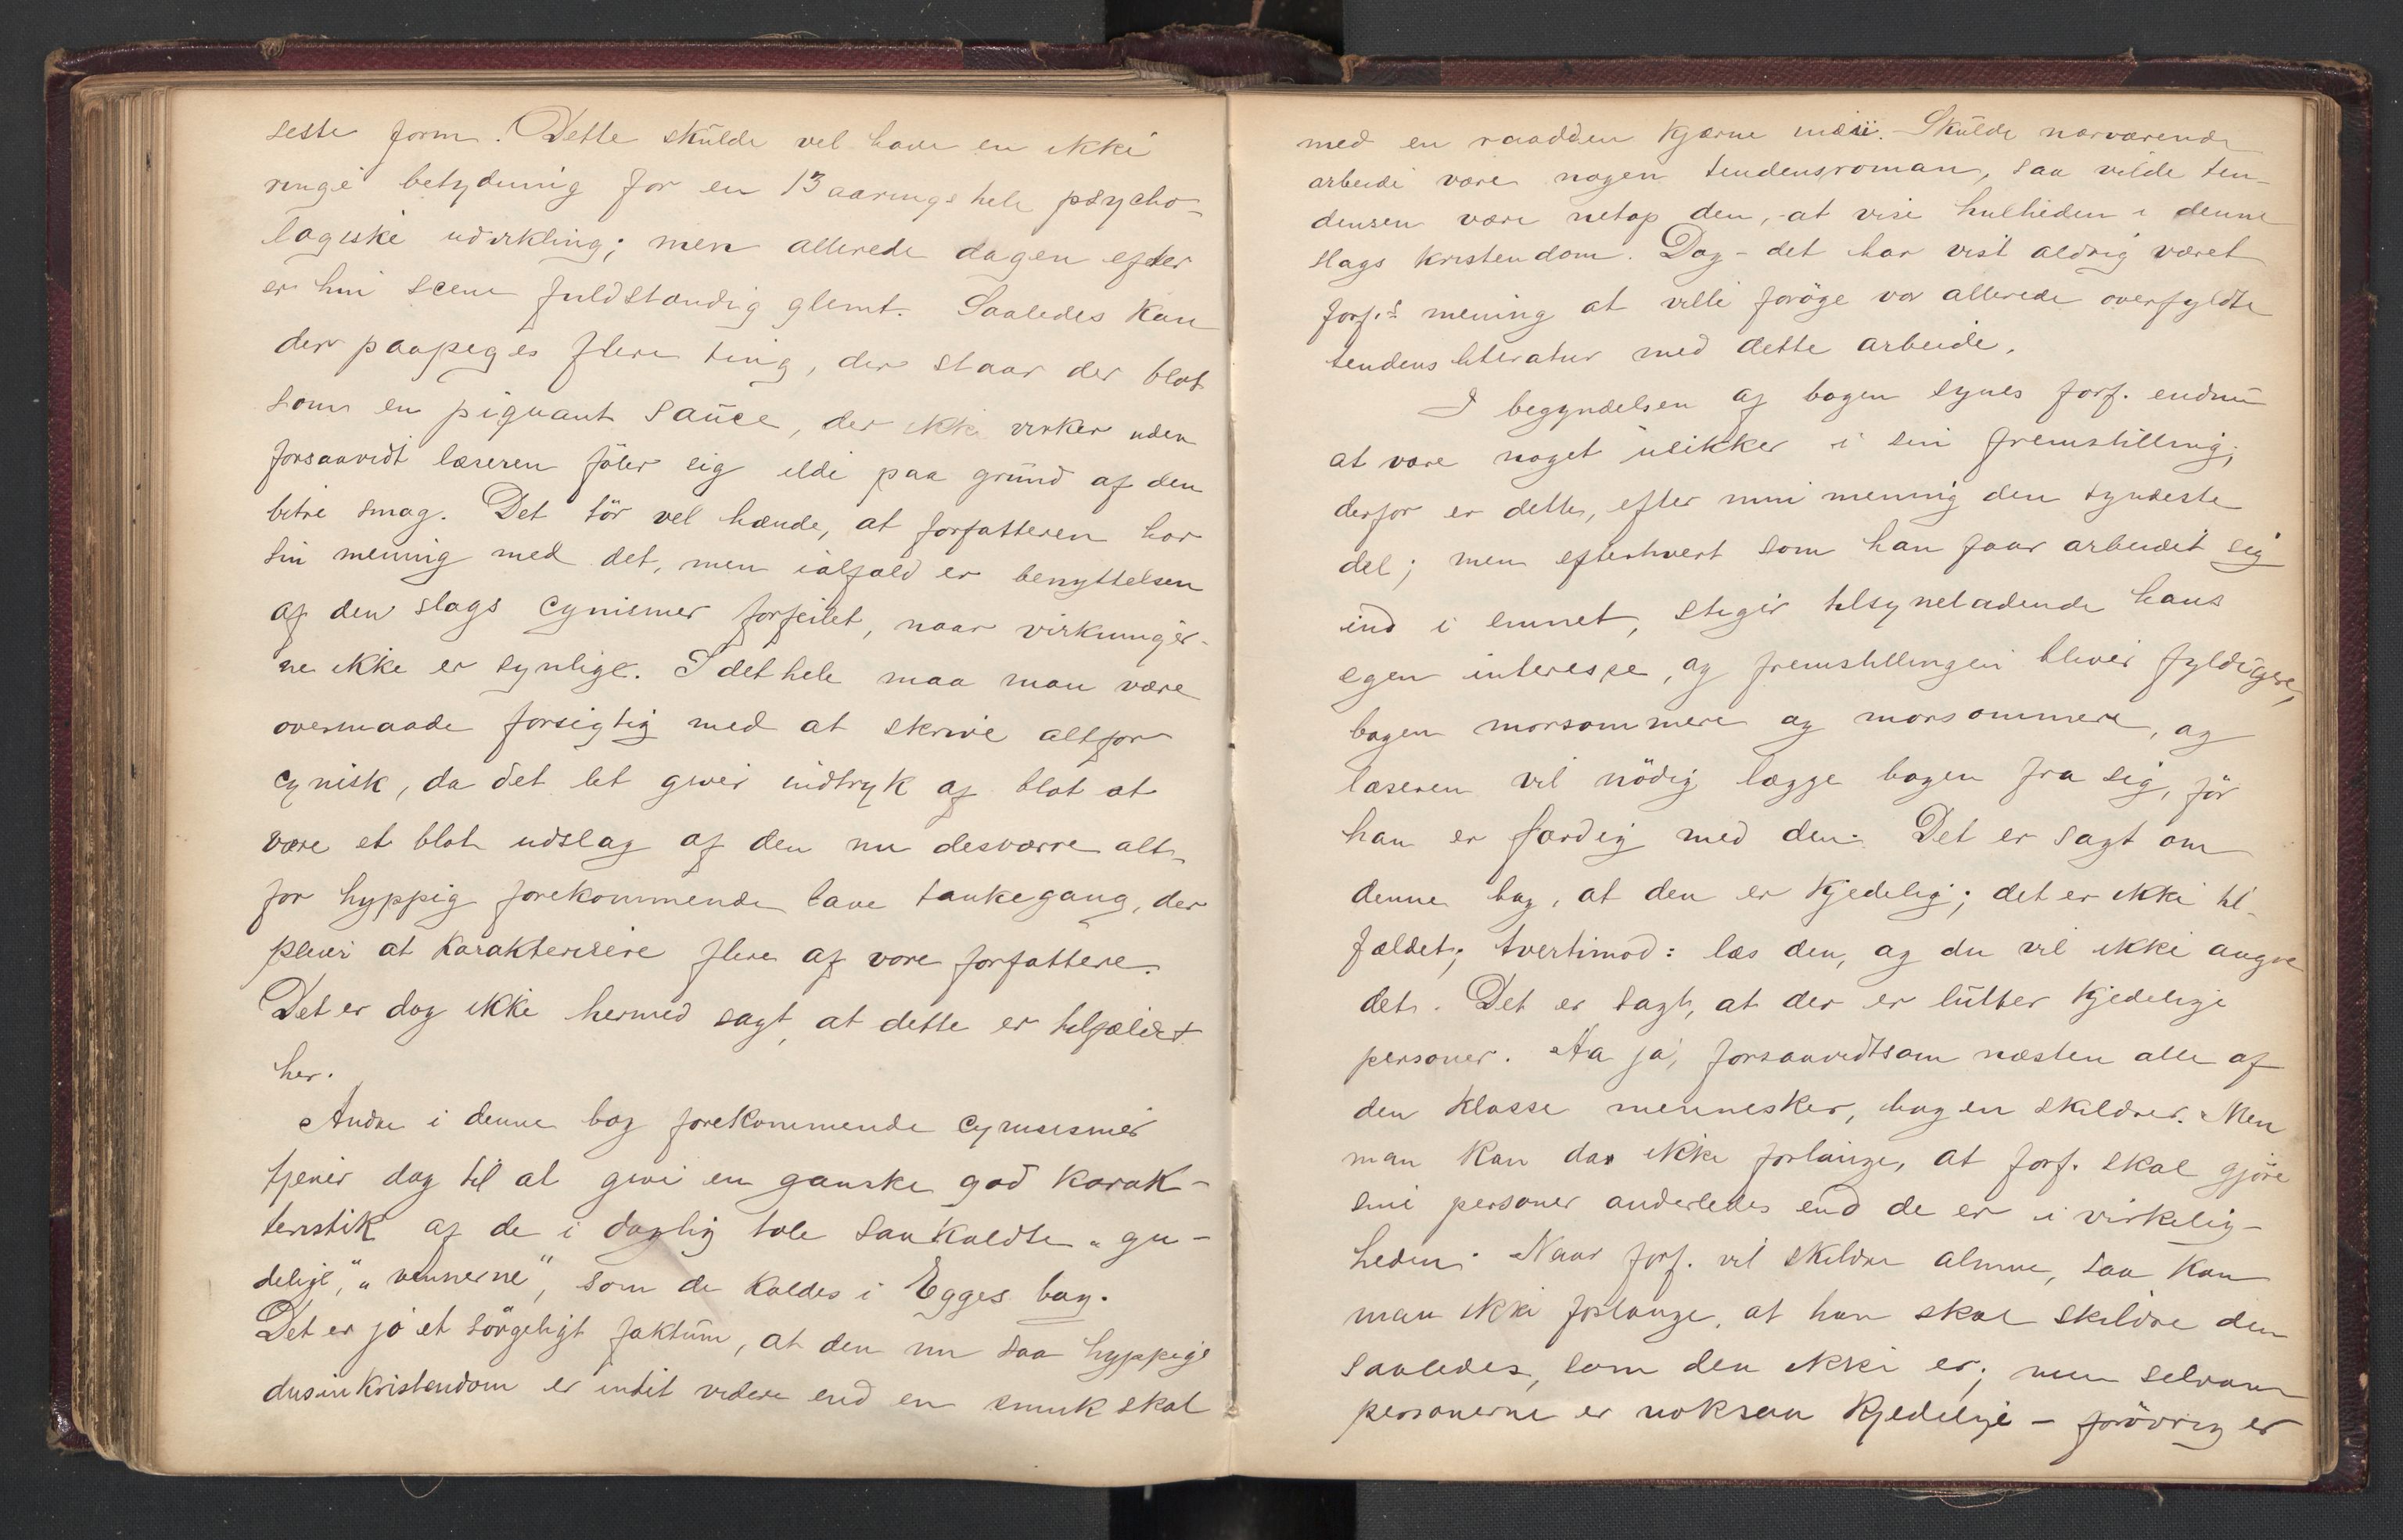 seste form! Dette skulde vel have en ikke
ringe betydning for en 13 aarings hele psycho-
logiske udvikling; men allerede dagen efter
er hin scene fuldstændig glemt. Saaledes kan
der paapeges flere ting, der staar der blot
som en piquant sauce, der ikke virker uden
forsaavidt læseren föler sig ilde paa grund af den
bitre smag. Det tör vel hænde, at forfatteren har
sin mening med det, men ialfald er benyttelsen
af den slags cynismer forfeilet, naar virkninger-
ne ikke er synlige. I det hele maa man være
overmaade forsigtig med at skrive altfor
cynisk, da det let giver indtryk af blot at
være et blot udslag af den nu desværre alt-
for hyppig forekommende lave tankegang, der
pleier at karakterisere flere af vore forfattere.
Det er dog ikke hermed sagt, at dette er tilfældet
her.
Andre i denne bog forekommende cynismer
tjener dog til at give en ganske god karak-
teristik af de i daglig tale saakaldte "gu-
delige," "vennerne", som de kaldes i Egges bog.
Det er jo et sörgeligt faktum, at den nu saa hyppige
dusinkristendom er intet videre end en smuk skal
med en raadden kjærne indeni. - Skulde nærværende
arbeide være nogen tendensroman, saa vilde ten-
densen være netop den, at vise hulheden i denne
slags kristendom. Dog - det har vist aldrig været
forf.s mening at ville foröge vor allerede overfyldte
tendensliteratur med dette arbeide.
I begyndelsen af bogen synes forf. endnu
at være noget usikker i sin fremstilling;
derfor er dette, efter min mening den tyndeste
del; men efterhvert som han faar arbeidet sig
ind i emnet, stiger tilsyneladende hans
egen interesse, og fremstillingen bliver fyldigere,
bogen morsommere og morsommere, og
læseren vil nödig lægge bogen fra sig, för
han er færdig med den. Det er sagt om
denne bog, at den er kjedelig; det er ikke til-
fældet; tvertimod: læs den, og du vil ikke angre
det. Det er sagt, at der er lutter kjedelige
personer. Aa ja, forsaavidtsom næsten alle af
den klasse mennesker, bogen skildrer. Men
man kan da ikke forlange, at forf. skal gjöre
sine personer anderledes end de er i virkelig-
heden. Naar forf. vil skildre almue, saa kan
man ikke forlange, at han skal skildre den
saaledes, som den ikke er; men selvom
personerne er noksaa kjedelige - forövrig er